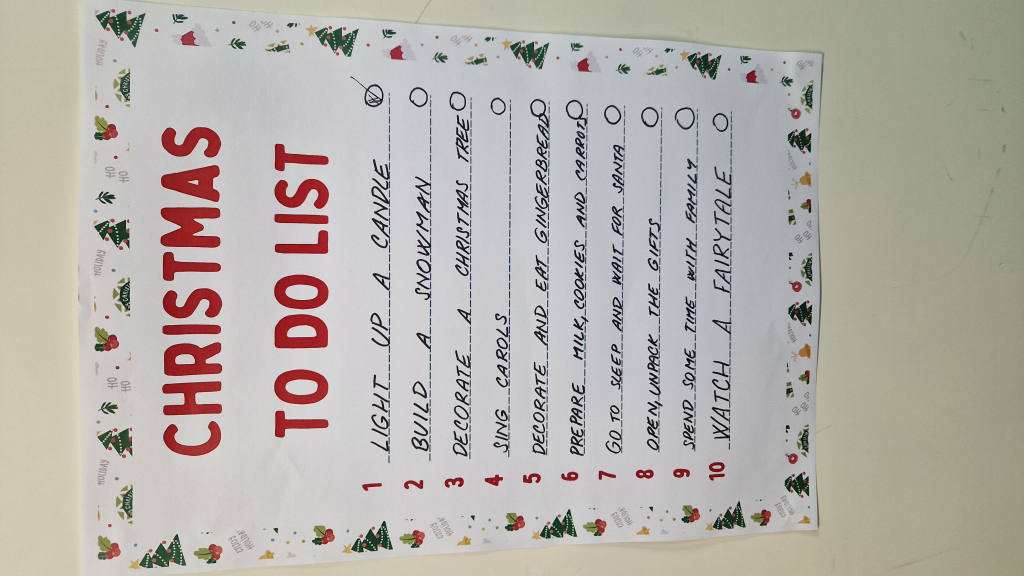 CHRISTMAS
TO DO LIST
1 LIGHT UP A CANDLE
2 BUILD A SNOWMAN
3 DECORATE A CHRISTMAS TREE
4 SING CAROLS
5 DECORATE AND EAT GINGERBREAD
6 PREPARE MILK, COOKIES AND CARROTS
7 GO TO SLEEP AND WAIT FOR SANTA
8 OPEN, UNPACK THE GIFTS
9 SPEND SOME TIME WITH FAMILY
10 WATCH A FAIRYTALE